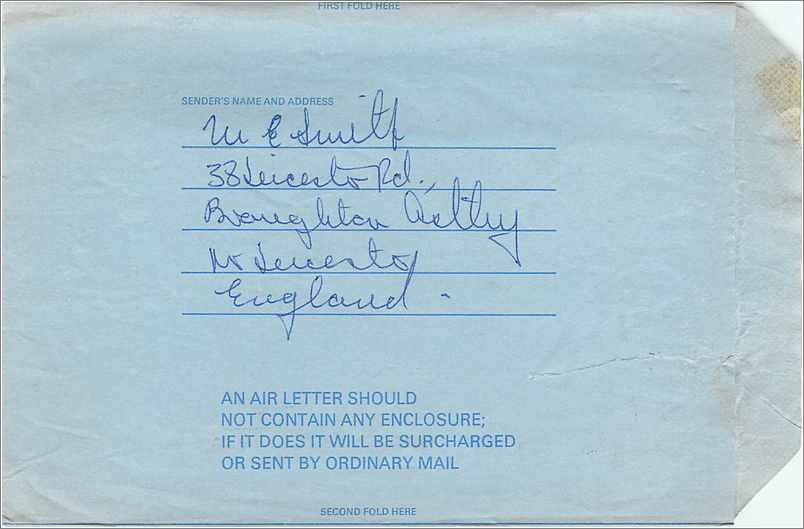 FIRST FOLD HERE
SENDER'S NAME AND ADDRESS
M E Smith
38 Leicester Rd.,
Broughton Astley
Nr Leicester
England -
AN AIR LETTER SHOULD
NOT CONTAIN ANY ENCLOSURE;
IF IT DOES IT WILL BE SURCHARGED
OR SENT BY ORDINARY MAIL
SECOND FOLD HERE